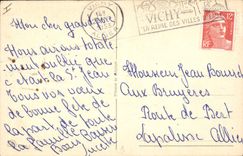 Mon cher grand père
Nous avons totale
ment oublié que
c'était la St Jean
Tous nos vœux
de bonne fête de
la part de toute
la famille
Bons baisers
VICHY
LA REINE DES VILLES
12F
RF
Monsieur Jean Bourd
Aux Bruyères
Route de Bert
Lapalisse Allier